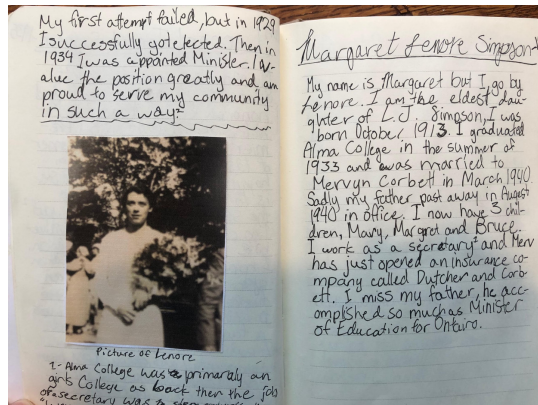 My first attempt failed, but in 1929
I successfully got elected. Then in
1934 I was appointed Minister. I v-
alue the position greatly and am
proud to serve my community
in such a way.
Picture of Lenore
1- Alma College was a primaraly an
girls College as back then the job
of a secretary was
Margaret Lenore Simpson
My name is Margaret but I go by
Lenore. I am the eldest dau-
ghter of L.J. Simpson, I was
born October, 1913. I graduated
Alma College in the summer of
1933 and was married to
Mervyn Corbett in March 1940.
Sadly my father past away in August
1940 in office. I now have 3 chil-
dren, Mary, Margret and Bruce.
I work as a secretary² and Merv
has just opened an insurance co-
mpany called Dutcher and Corb-
ett. I miss my father, he acc-
omplished so much as Minister
of Education for Ontairo.